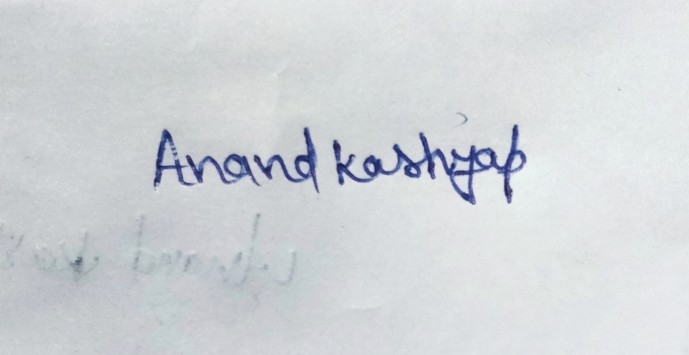 Anand kashyap